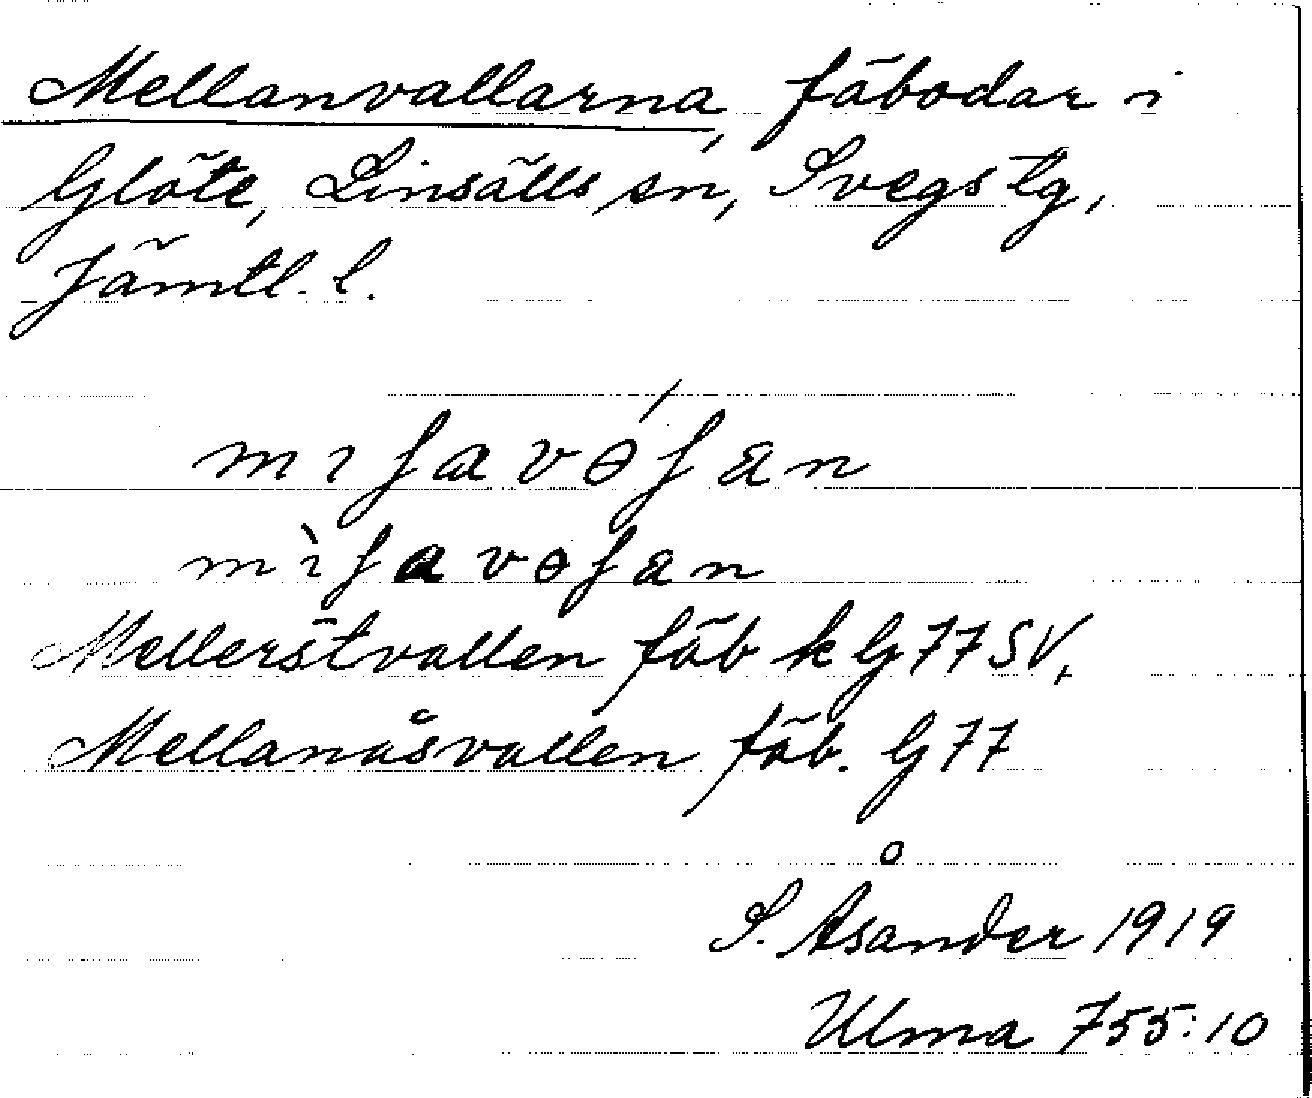 Mellanvallarna, fäbodar i
Glöte, Linsälls sn, Svegs tg,
Jämtl. l.
mıʃavɵ́ʃan
mı̀ʃavɵʃan
Mellerstvallen fäb k G77SV,
Mellanåsvallen fäb. G77
S. Åsander 1919
Ulma 755:10